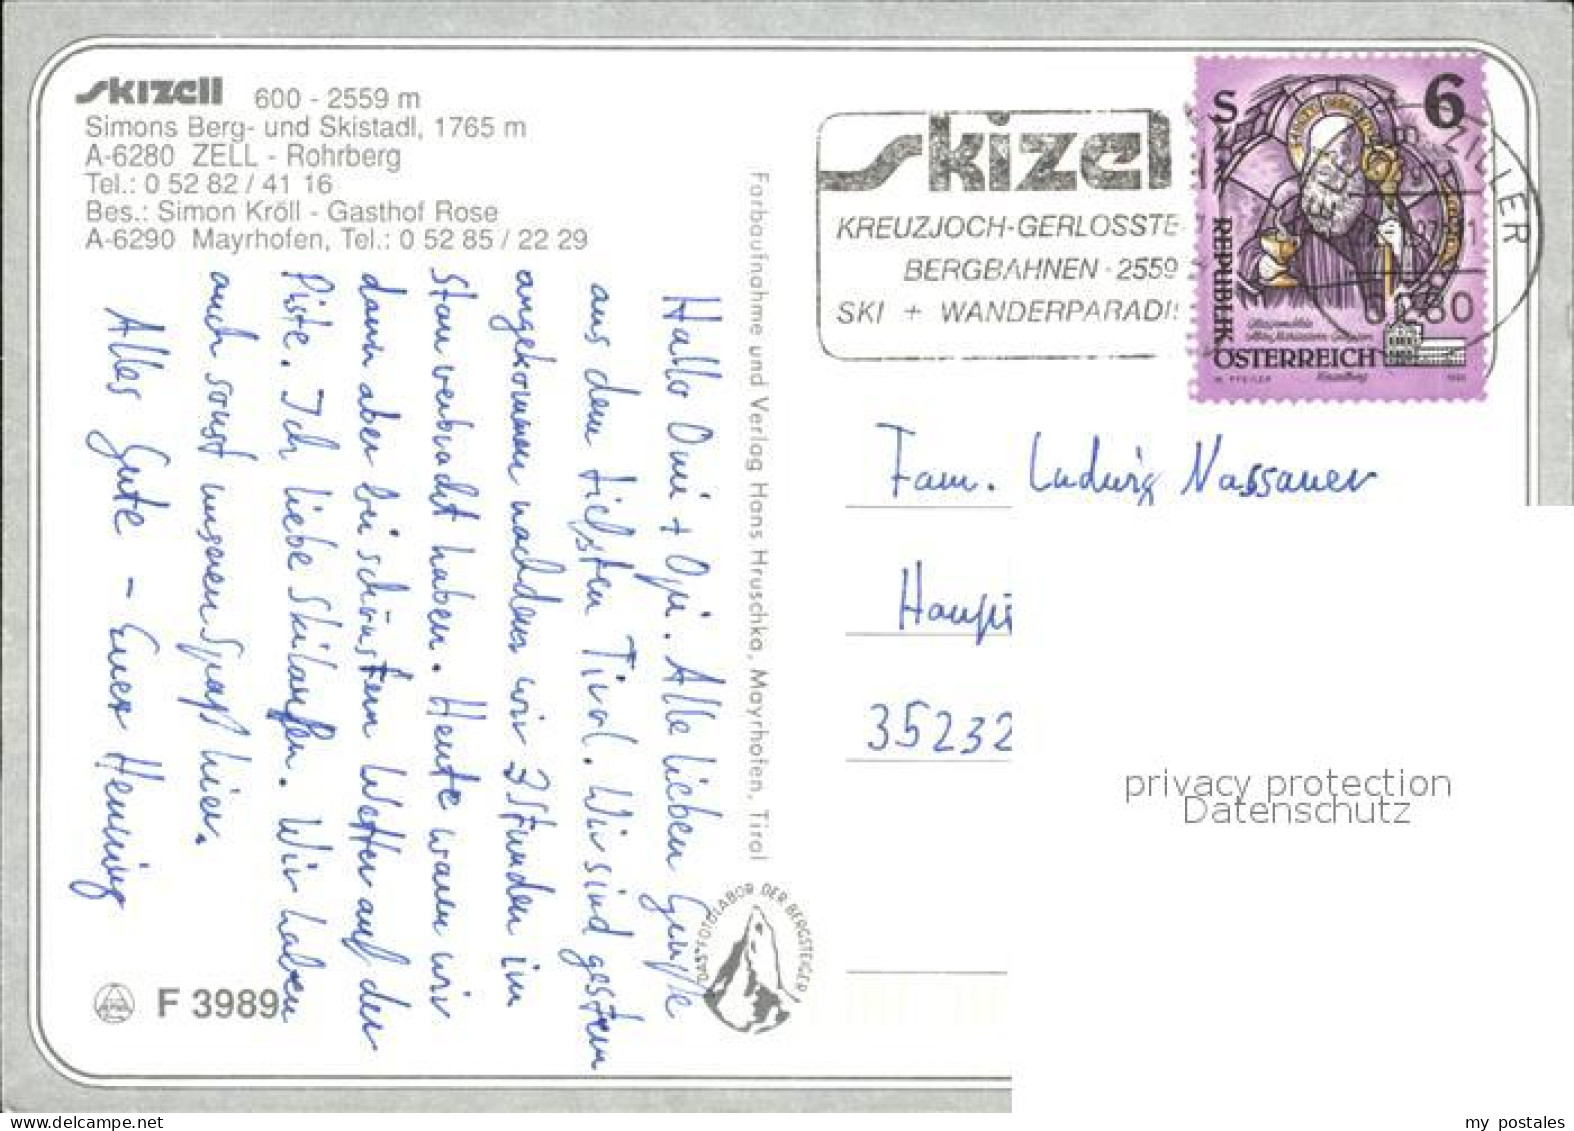 skizell 600 - 2559 m
Simons Berg- und Skistadl, 1765 m
A-6280 ZELL - Rohrberg
Tel.: 0 52 82 / 41 16
Bes.: Simon Kröll - Gasthof Rose
A-6290 Mayrhofen, Tel.: 0 52 85 / 22 29
Hallo Omi + Opi. Alle lieben Grüße
aus dem tiefsten Tirol. Wir sind gestern
angekommen nachdem wir 3 Stunden im
Stau verbracht haben. Heute waren wir
dann aber bei schönstem Wetter auf der
Piste. Ich liebe Skilaufen. Wir haben
auch sonst unseren Spaß hier.
Alles Gute – Euer Henning
F 3989
Farbaufnahme und Verlag Hans Hruschka, Mayrhofen, Tirol
DAS FOTOLABOR DER BERGSTEIGER
skizel
KREUZJOCH-GERLOSSTE
BERGBAHNEN - 2559
SKI + WANDERPARADI
S 6
REPUBLIK
ÖSTERREICH
W. PFEILER
6280
Fam. Ludwig Nassauer
Haupt
35232
privacy protection
Datenschutz
my postales